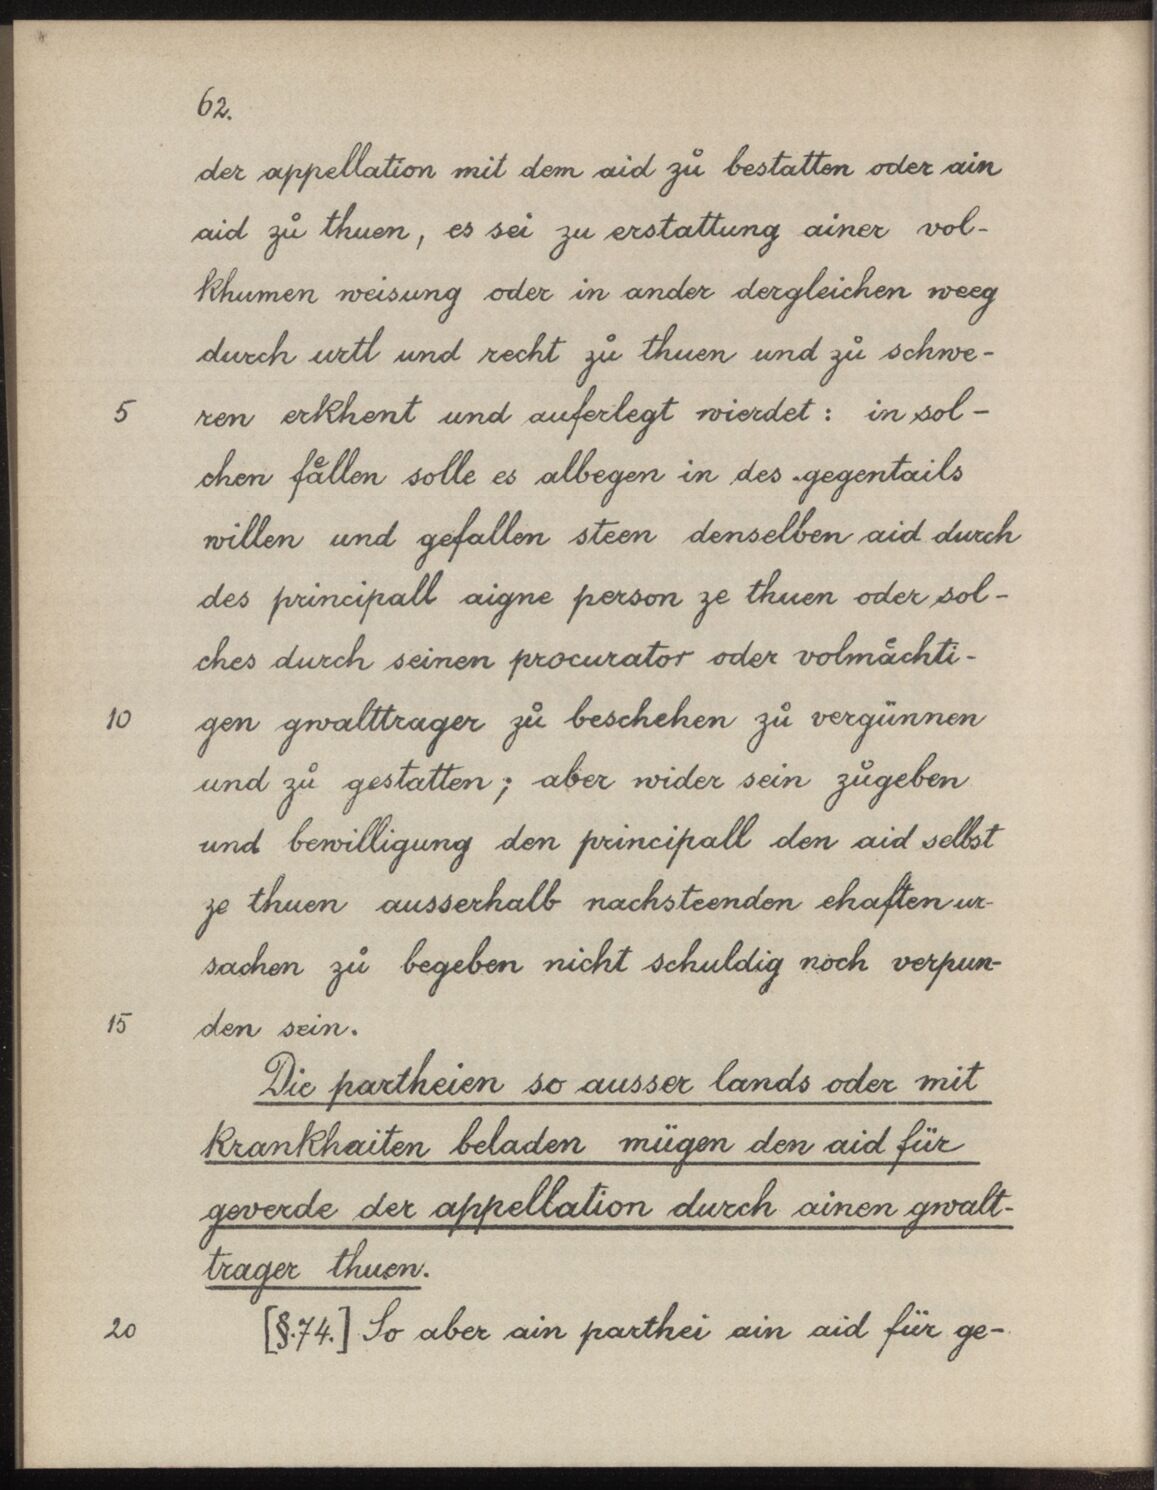 62.
der appellation mit dem aid zů bestatten oder ain
aid zů thuen, es sei zu erstattung ainer vol-
khumen weisung oder in ander dergleichen weeg
durch urtl und recht zů thuen und zů schwe-
5 ren erkhent und auferlegt wierdet: in sol-
chen fåͤllen solle es albegen in des gegentails
willen und gefallen steen denselben aid durch
des principall aigne person ze thuen oder sol-
ches durch seinen procurator oder volmaͤchti-
10 gen gwalttrager zů beschehen zů vergünnen
und zů gestatten; aber wider sein zůgeben
und bewilligung den principall den aid selbst
ze thuen ausserhalb nachsteenden ehaften ur-
sachen zů begeben nicht schuldig noch verpun-
15 den sein.
Die partheien so ausser lands oder mit
krankhaiten beladen mügen den aid für
geverde der appellation durch ainen gwalt-
trager thuen.
20 [§.74.] So aber ain parthei ain aid für ge-